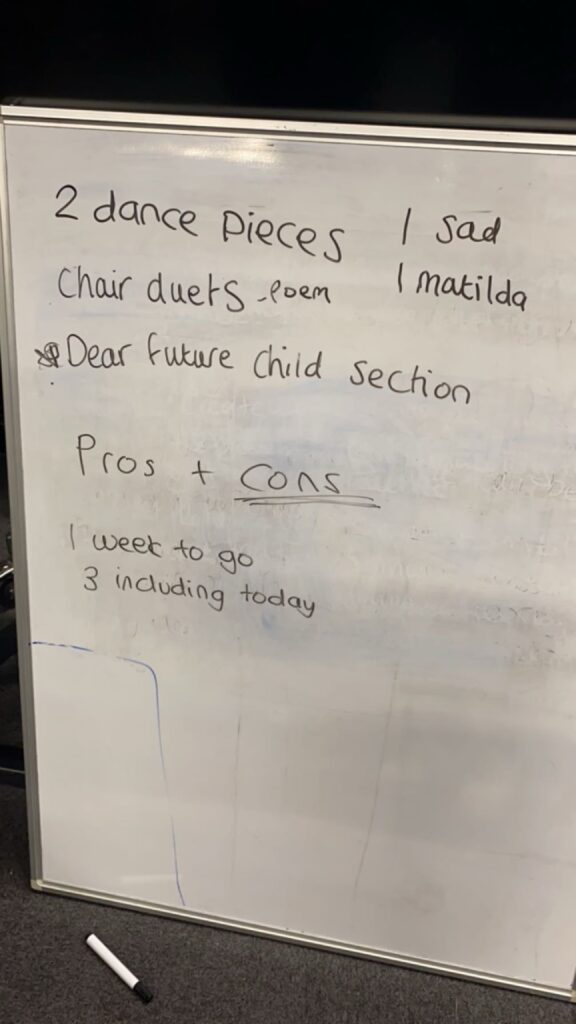 2 dance pieces 1 sad
Chair duets - poem 1 matilda
Dear future child section
Pros + cons
1 week to go
3 including today